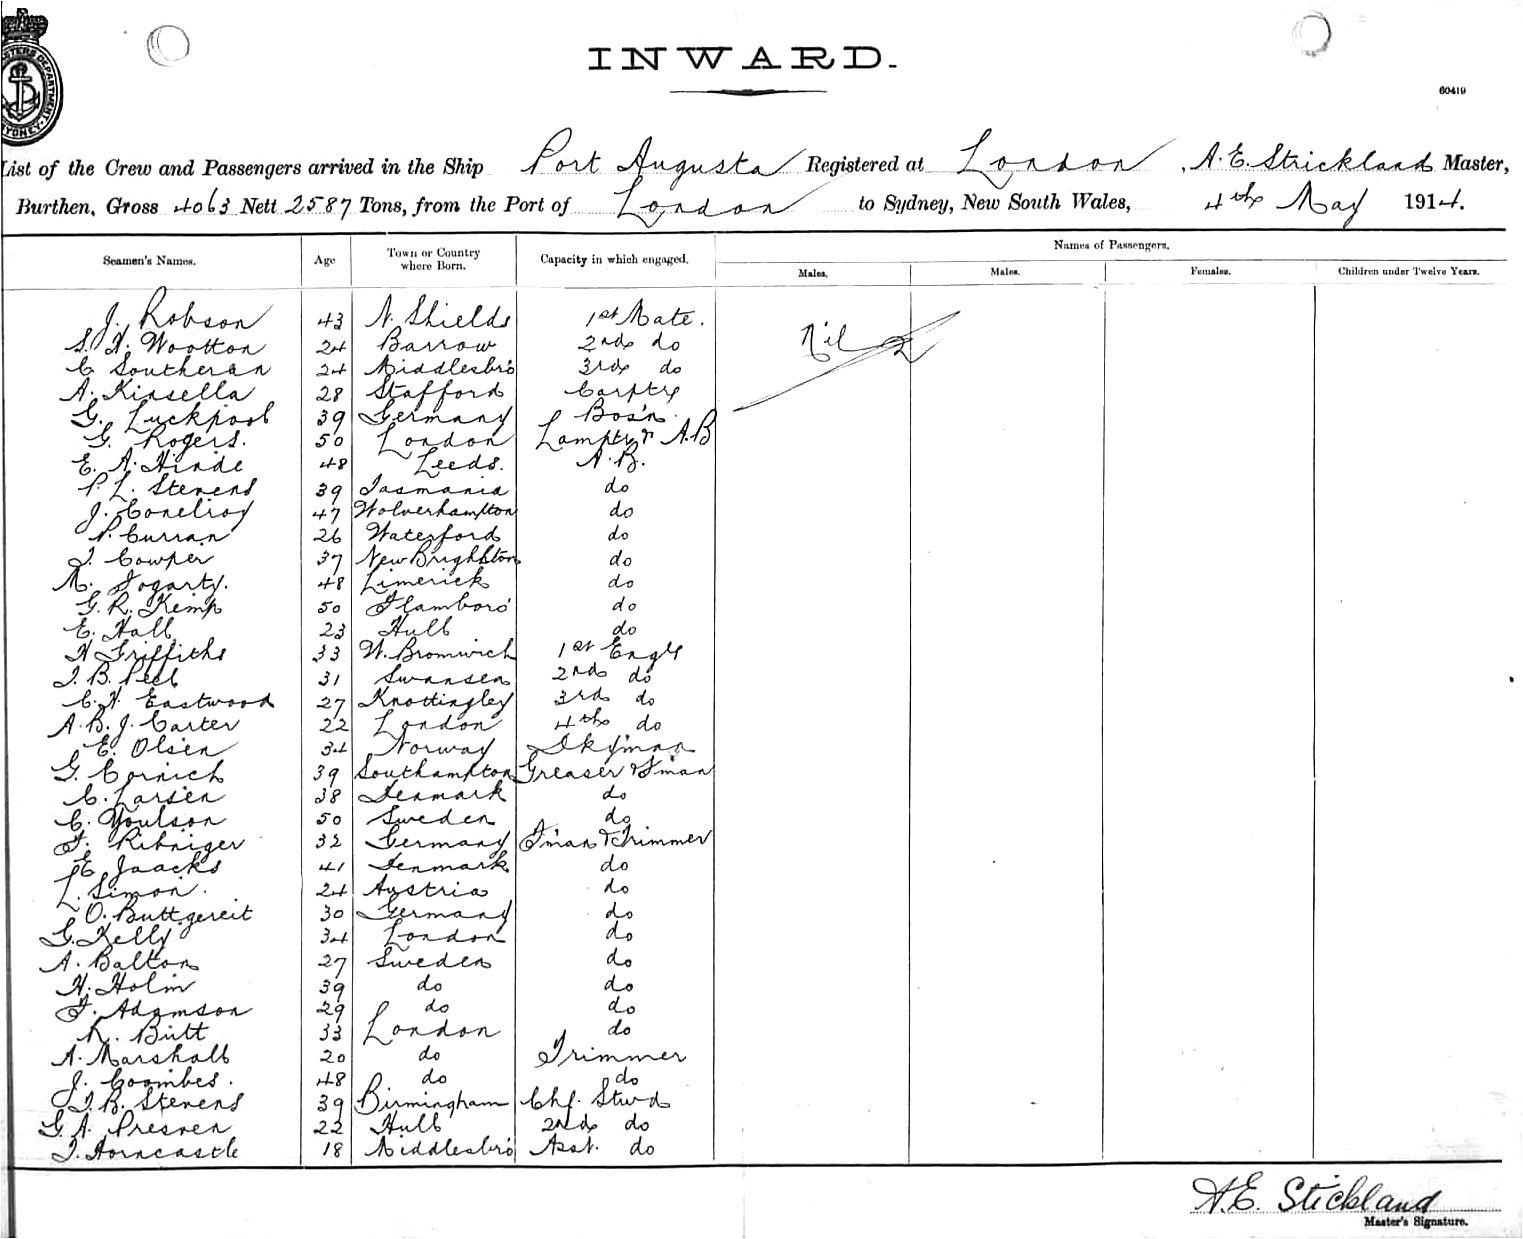 INWARD.
60419
List of the Crew and Passengers arrived in the Ship Port Augusta Registered at London, A.E. Strickland Master,
Burthen, Gross 4063 Nett 2587 Tons, from the Port of London to Sydney, New South Wales, 4th May 1914.
Names of Passengers.
Seamen's Names. Age Town or Country where Born. Capacity in which engaged. Males. Males. Females. Children under Twelve Years.
J. Robson 43 N. Shields 1st Mate.
S. H. Wootton 24 Barrow 2nd do Nil
C Southeran 24 Middlesbro' 3rd do
A. Kinsella 28 Stafford Carptr
G. Luckpool 39 Germany Bos'n.
G. Rogers. 50 London Lamptr & A.B
E. A. Hinde 48 Leeds. A.B.
P. L. Stevens 39 Tasmania do
J. Conelroy 47 Wolverhampton do
P. Curran 26 Waterford do
J. Cowper 37 New Brighton do
M. Fogarty. 48 Limerick do
G. R. Kemp 50 Flamboro' do
E. Hall 23 Hull do
H Griffiths 33 W. Bromwich 1st Engr
J. B. Peel 31 Swansea 2nd do
C. H. Eastwood 27 Knottingley 3rd do
A. B. J. Carter 22 London 4th do
E. Olsen 34 Norway Dkyman
G. Cornich 39 Southampton Greaser & F'man
C. Larsen 38 Denmark do
C. Youlson 50 Sweden do
F. Ribniger 32 Germany F'man & Trimmer
E. Jaacks 41 Denmark do
L. Simon. 24 Austria do
O. Buttgereit 30 Germany do
G. Kelly 34 London do
A. Balton 27 Sweden do
H. Holm 39 do do
F. Adamson 29 do do
R. Butt 33 London do
A. Marshall 20 do Trimmer
J. Coombes. 48 do do
J. B. Stevens 39 Birmingham Chf. Stwd
G. A. 22 Hull 2nd do
J. Horncastle 18 Middlesbro' Asst. do
A.E. Stickland
Master's Signature.